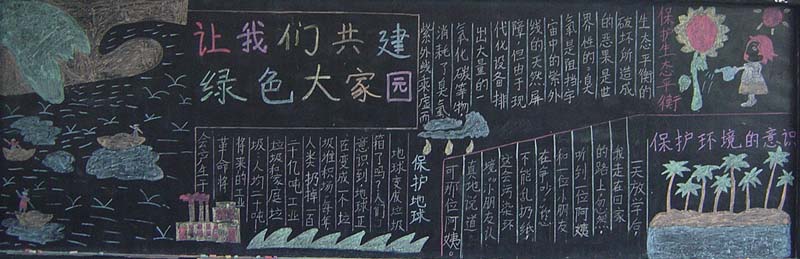 让我们共建
绿色大家园
保护生态平衡
生态平衡的
破坏所造成
的恶果是世
界性的。臭
氧是阻挡宇
宙中的紫外
线的天然屏
障但由于现
代化设备排
出大量的一
氧化碳等物
消耗了臭氧
紫外线乘虚而
保护环境的意识
一天放学后
我走在回家
的路上忽然
听到一位阿姨
和一位小朋友
在争吵:您
不能乱扔纸
这会污染环
境。小朋友认
真地说道
可那位阿姨。
保护地球
地球变成垃圾
箱了吗?人们
意识到地球正
在变成一个垃
圾堆积场,每年
人类扔掉一百
千亿吨工业
垃圾和家庭垃
圾,人均一十吨
将来的工业
革命将
会产生千